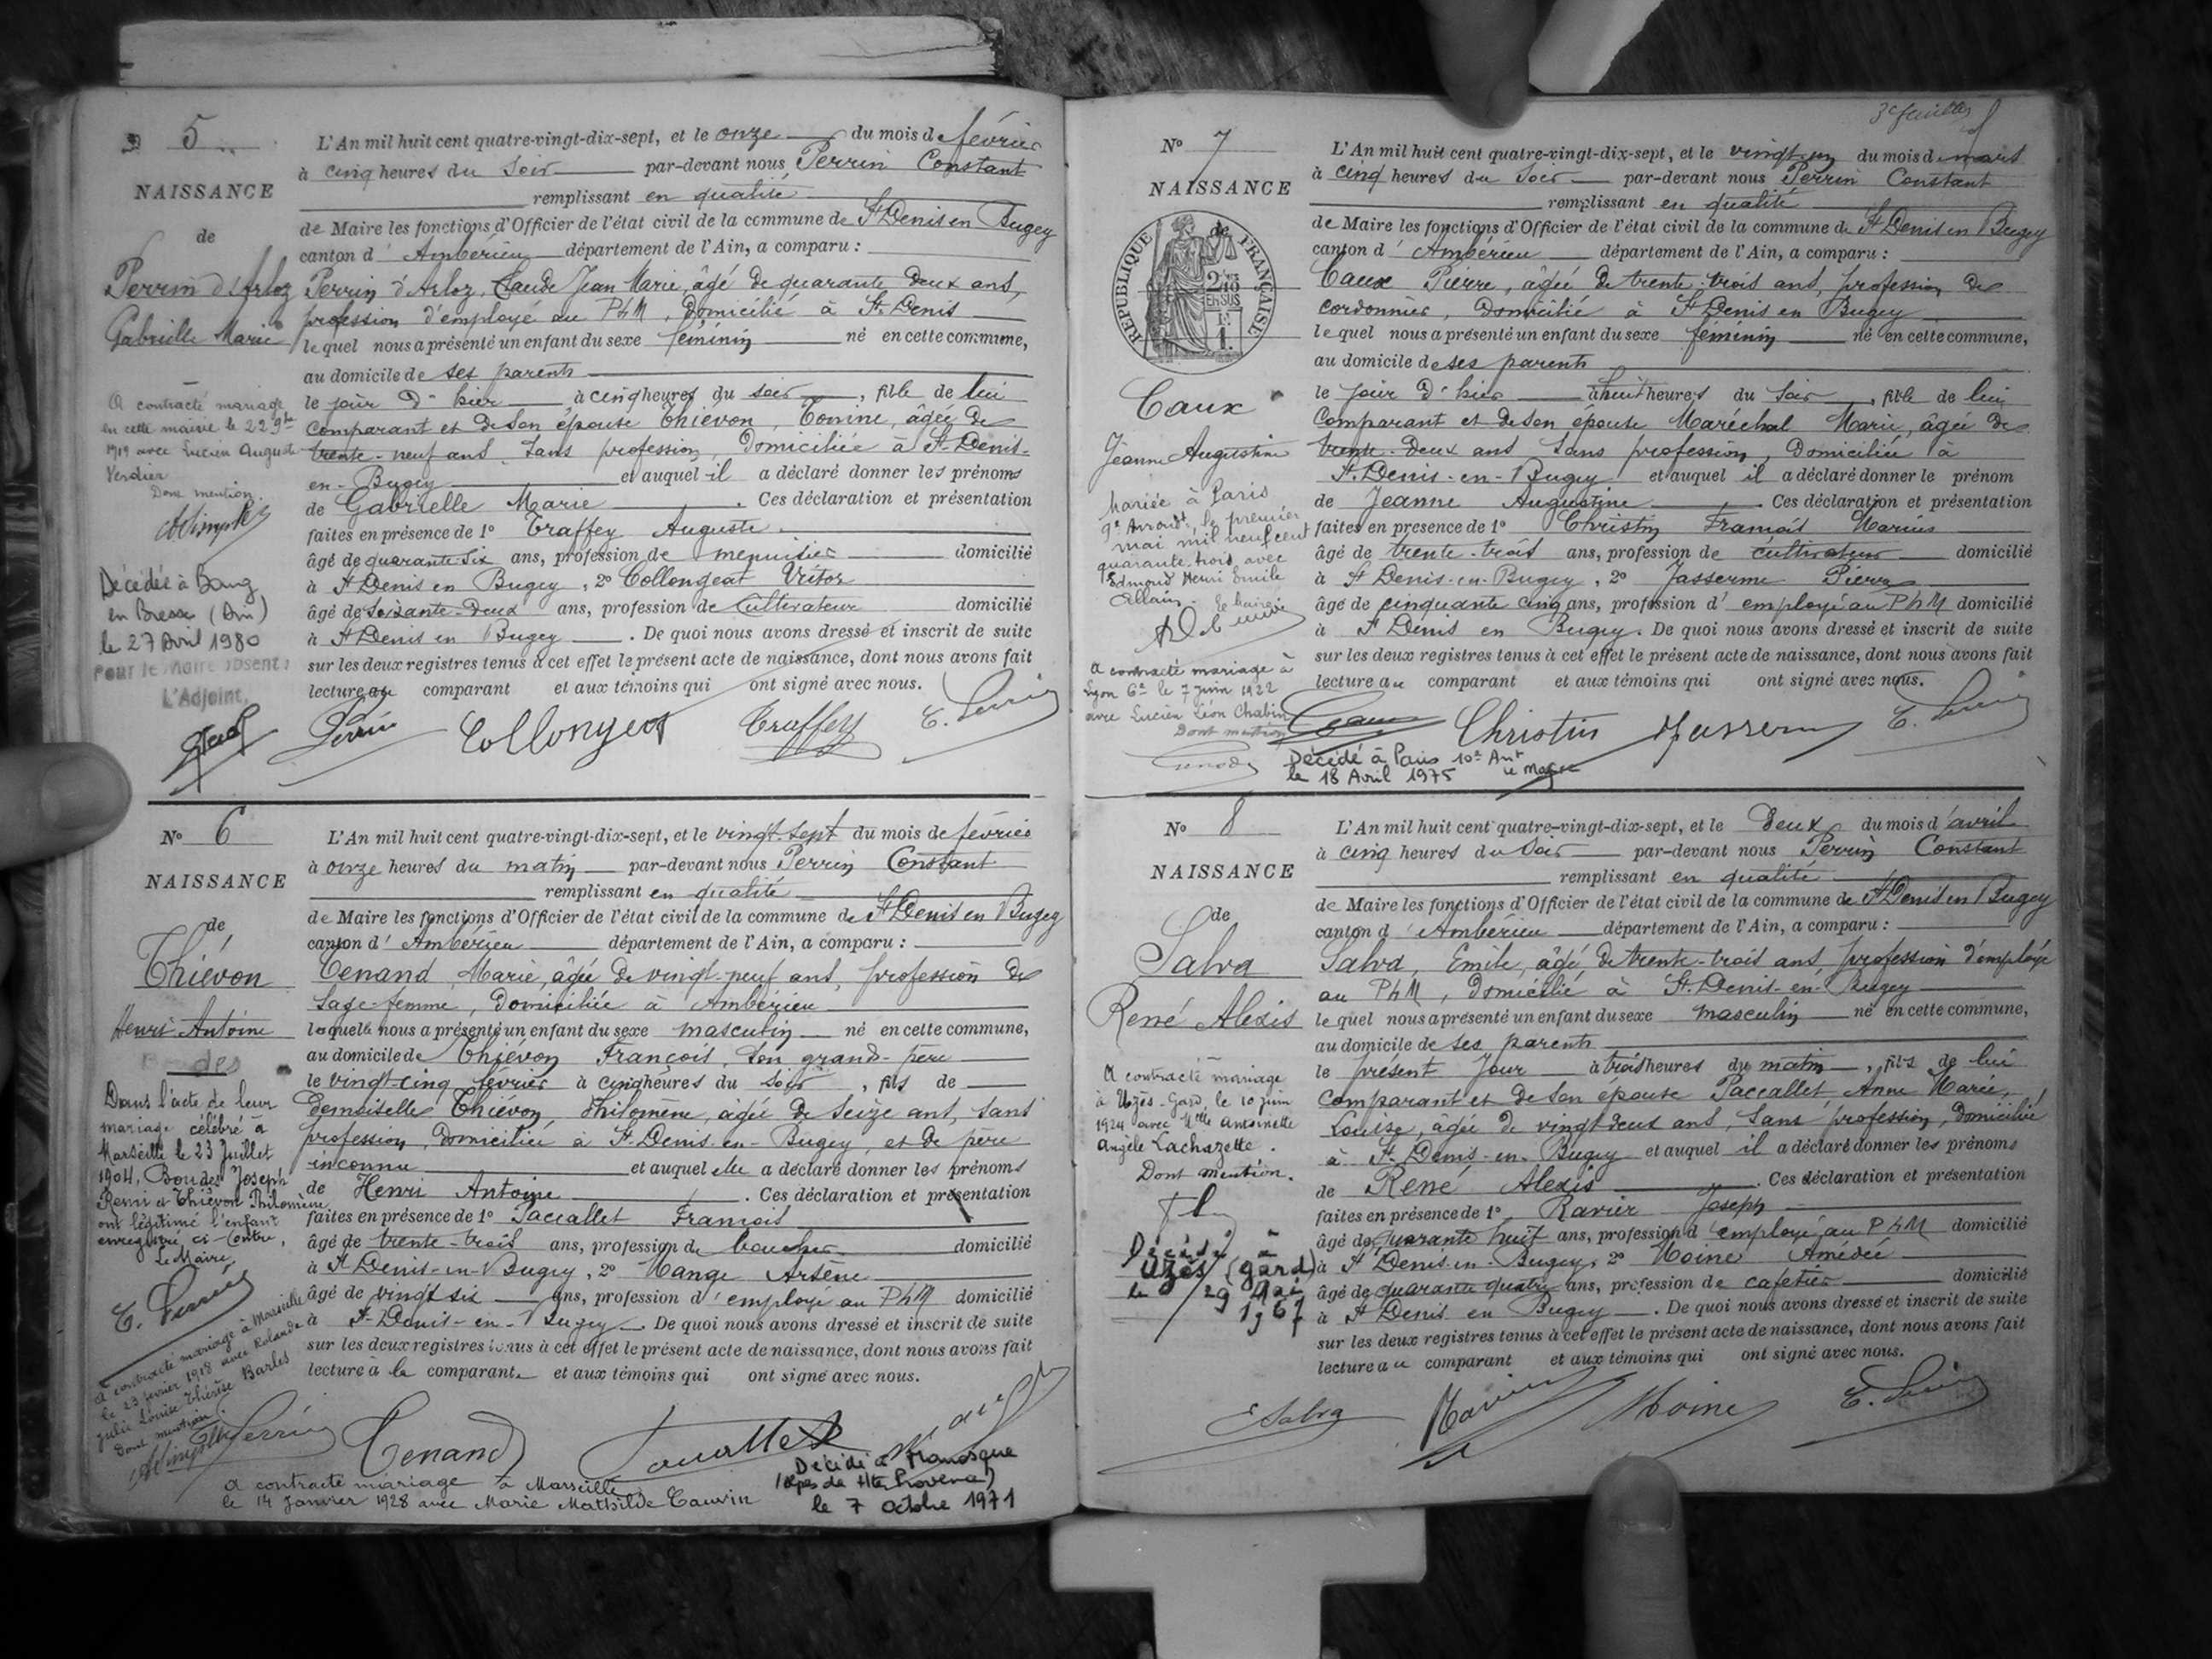 5
NAISSANCE
de
Perrin d'Arloz
Gabrielle Marie
A contracté mariage
en cette mairie le 22 9bre
1919 avec Lucien Auguste
Verdier
Dont mention.
Décédée à Bourg
en Bresse (Ain)
le 27 Avril 1980
Pour le Maire absent :
L'Adjoint,
L'An mil huit cent quatre-vingt-dix-sept, et le onze du mois de février
à cinq heures du soir par-devant nous Perrin Constant
remplissant en qualité
de Maire les fonctions d'Officier de l'état civil de la commune de St Denis en Bugey
canton d'Ambérieu département de l'Ain, a comparu :
Perrin d'Arloz, Claude Jean Marie, âgé de quarante deux ans,
profession d'employé au PLM, domicilié à St Denis
lequel nous a présenté un enfant du sexe féminin né en cette commune,
au domicile de ses parents
le jour d'hier à cinq heures du soir, fille de lui
comparant et de son épouse Thiévon, Tonine, âgée de
trente-neuf ans, sans profession, domiciliée à St Denis-
en-Bugey et auquel il a déclaré donner les prénoms
de Gabrielle Marie. Ces déclaration et présentation
faites en présence de 1° Traffey Auguste
âgé de quarante-six ans, profession de menuisier domicilié
à St Denis en Bugey, 2° Collongeat Victor
âgé de soixante-deux ans, profession de cultivateur domicilié
à St Denis en Bugey. De quoi nous avons dressé et inscrit de suite
sur les deux registres tenus à cet effet le présent acte de naissance, dont nous avons fait
lecture au comparant et aux témoins qui ont signé avec nous.
Perrin Collongeat Traffey C. Perrin
No 6
NAISSANCE
de
Thiévon
Henri Antoine
Dans l'acte de leur
mariage célébré à
Marseille le 23 Juillet
1904, Boudes Joseph
Rémi et Thiévon Philomène
ont légitimé l'enfant
enregistré ci-contre,
Le Maire,
C. Perrin
A contracté mariage à Marseille
le 23 février 1918 avec Rolande
Julie Louise Thérèse Barles
Dont mention.
L'An mil huit cent quatre-vingt-dix-sept, et le vingt-sept du mois de février
à onze heures du matin par-devant nous Perrin Constant
remplissant en qualité
de Maire les fonctions d'Officier de l'état civil de la commune de St Denis en Bugey
canton d'Ambérieu département de l'Ain, a comparu :
Tenand, Marie, âgée de vingt-neuf ans, profession de
sage-femme, domiciliée à Ambérieu
laquelle nous a présenté un enfant du sexe masculin né en cette commune,
au domicile de Thiévon François, son grand-père
le vingt-cinq février à cinq heures du soir, fils de
demoiselle Thiévon, Philomène, âgée de seize ans, sans
profession, domiciliée à St Denis-en-Bugey, et de père
inconnu et auquel elle a déclaré donner les prénoms
de Henri Antoine. Ces déclaration et présentation
faites en présence de 1° Paccallet François
âgé de trente-trois ans, profession de boucher domicilié
à St Denis-en-Bugey, 2° Mange Arsène
âgé de vingt six ans, profession d'employé au PLM domicilié
à St-Denis-en-Bugey. De quoi nous avons dressé et inscrit de suite
sur les deux registres tenus à cet effet le présent acte de naissance, dont nous avons fait
lecture à la comparante et aux témoins qui ont signé avec nous.
Perrin Tenand
A contracté mariage à Marseille
le 14 Janvier 1928 avec Marie Mathilde Cauvin
Décédé à Manosque
(Alpes de Hte Provence)
le 7 octobre 1971
3e feuillet
No 7
NAISSANCE
de
RÉPUBLIQUE FRANÇAISE
2/10es
EN SUS
1.
Caux
Jeanne Augustine
Mariée à Paris
9e Arrondt, le premier
mai mil neuf cent
quarante trois avec
Edmond Henri Emile
Allain.
Le Maire
A contracté mariage à
Lyon 6e le 7 juin 1922
avec Lucien Léon Chabin
Dont mention
L'An mil huit cent quatre-vingt-dix-sept, et le vingt-un du mois de mars
à cinq heures du soir par-devant nous Perrin Constant
remplissant en qualité
de Maire les fonctions d'Officier de l'état civil de la commune de St Denis en Bugey
canton d'Ambérieu département de l'Ain, a comparu :
Caux Pierre, âgé de trente-trois ans, profession de
cordonnier, domicilié à St Denis en Bugey
lequel nous a présenté un enfant du sexe féminin né en cette commune,
au domicile de ses parents
le jour d'hier à huit heures du soir, fille de lui
comparant et de son épouse Maréchal Marie, âgée de
trente-deux ans sans profession, domiciliée à
St-Denis-en-Bugey et auquel il a déclaré donner le prénom
de Jeanne Augustine. Ces déclaration et présentation
faites en présence de 1° Christin François Marius
âgé de trente-trois ans, profession de cultivateur domicilié
à St Denis-en-Bugey, 2° Jasserme Pierre
âgé de cinquante cinq ans, profession d'employé au PLM domicilié
à St Denis en Bugey. De quoi nous avons dressé et inscrit de suite
sur les deux registres tenus à cet effet le présent acte de naissance, dont nous avons fait
lecture au comparant et aux témoins qui ont signé avec nous.
Caux Christin Jasserme C. Perrin
Décédé à Paris 10e Arrt
le 18 Avril 1975 le Maire
No 8
NAISSANCE
de
Salva
René Alexis
A contracté mariage
à Uzès-Gard le 10 juin
1924 avec Melle Antoinette
Angèle Lachazette.
Dont mention.
Décédé à
Uzès (Gard)
le 29 Mai
1967
L'An mil huit cent quatre-vingt-dix-sept, et le deux du mois d'avril
à cinq heures du soir par-devant nous Perrin Constant
remplissant en qualité
de Maire les fonctions d'Officier de l'état civil de la commune de St Denis en Bugey
canton d'Ambérieu département de l'Ain, a comparu :
Salva, Emile, âgé de trente-trois ans, profession d'employé
au PLM, domicilié à St-Denis-en-Bugey
lequel nous a présenté un enfant du sexe masculin né en cette commune,
au domicile de ses parents
le présent jour à trois heures du matin, fils de lui
comparant et de son épouse Paccallet, Anne Marie,
Louise, âgée de vingt-deux ans, sans profession, domiciliée
à St-Denis-en-Bugey et auquel il a déclaré donner les prénoms
de René Alexis. Ces déclaration et présentation
faites en présence de 1° Ravier Joseph
âgé de quarante huit ans, profession d'employé au PLM domicilié
à St Denis-en-Bugey, 2° Moine Amédée
âgé de quarante quatre ans, profession de cafetier domicilié
à St Denis en Bugey. De quoi nous avons dressé et inscrit de suite
sur les deux registres tenus à cet effet le présent acte de naissance, dont nous avons fait
lecture au comparant et aux témoins qui ont signé avec nous.
E Salva Ravier Moine C. Perrin